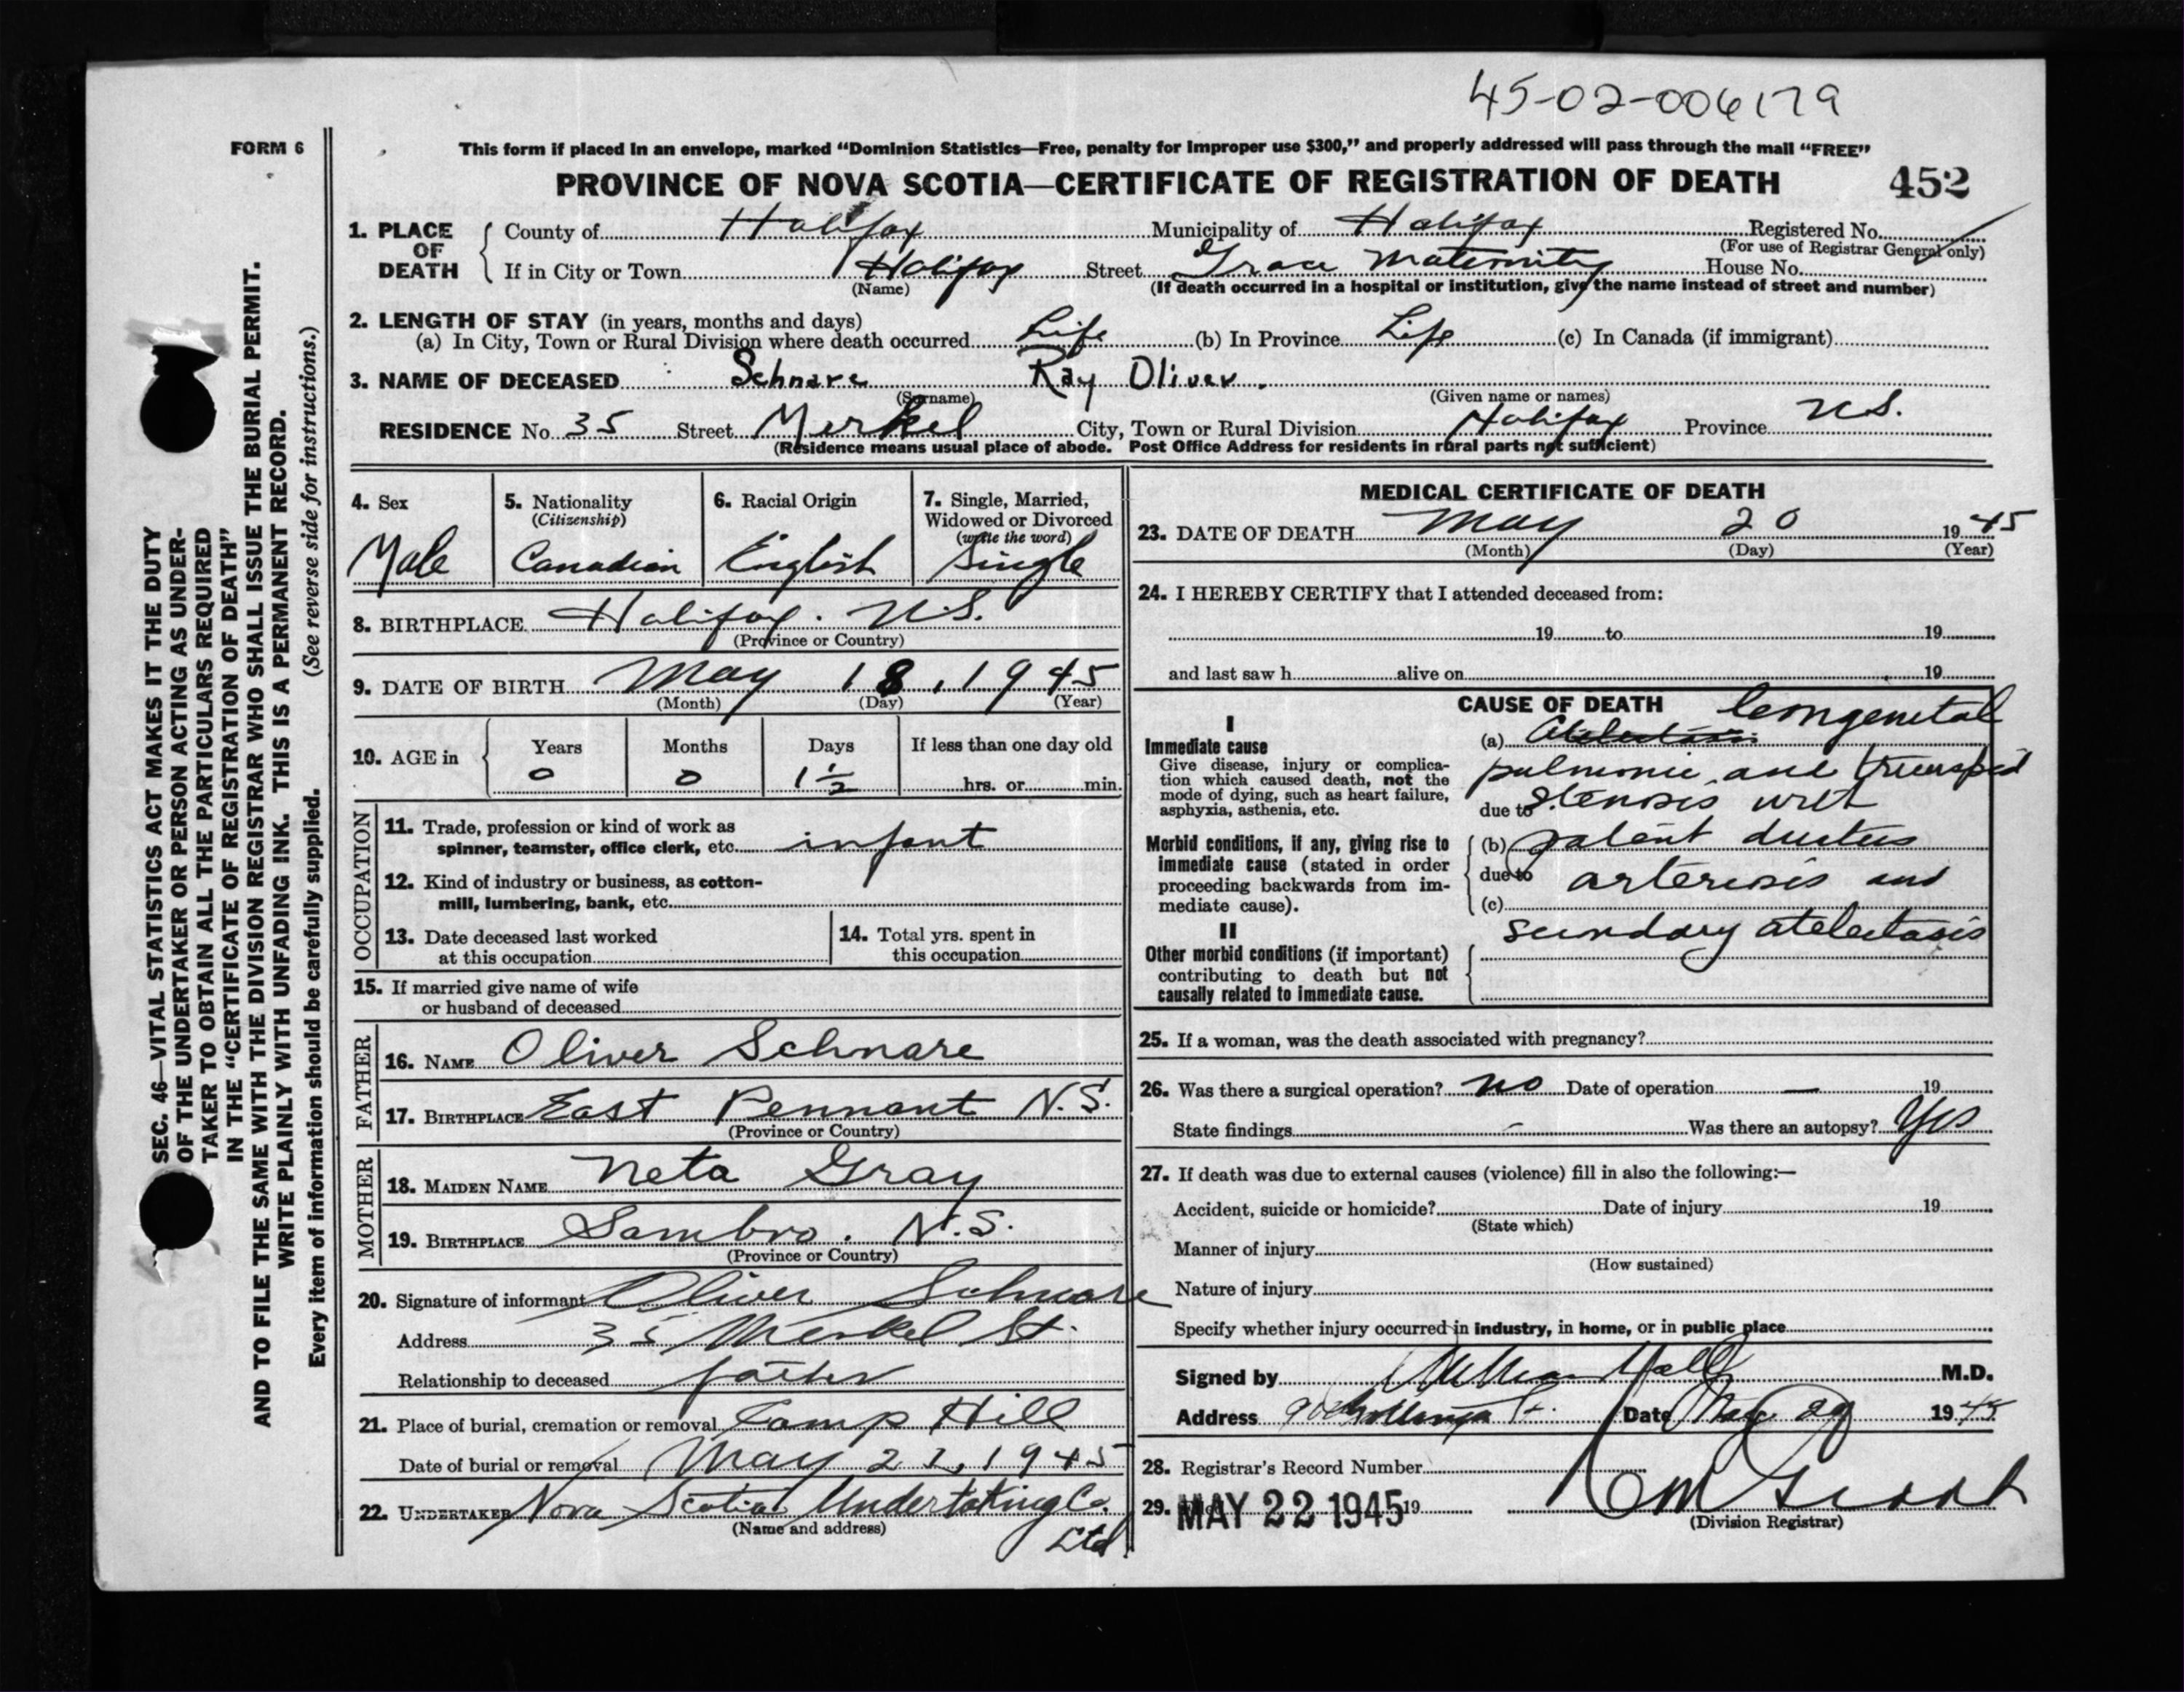 45-02-006179
FORM 6
This form if placed in an envelope, marked “Dominion Statistics—Free, penalty for improper use $300,” and properly addressed will pass through the mail “FREE”
PROVINCE OF NOVA SCOTIA—CERTIFICATE OF REGISTRATION OF DEATH 452
1. PLACE OF DEATH County of Halifax Municipality of Halifax Registered No.
(For use of Registrar General only)
If in City or Town Halifax Street Grace Maternity House No.
(Name) (If death occurred in a hospital or institution, give the name instead of street and number)
2. LENGTH OF STAY (in years, months and days)
(a) In City, Town or Rural Division where death occurred Life (b) In Province Life (c) In Canada (if immigrant)
3. NAME OF DECEASED Schnare Ray Oliver.
(Surname) (Given name or names)
RESIDENCE No. 35 Street Merkel City, Town or Rural Division Halifax Province N.S.
(Residence means usual place of abode. Post Office Address for residents in rural parts not sufficient)
4. Sex Male
5. Nationality (Citizenship) Canadian
6. Racial Origin English
7. Single, Married, Widowed or Divorced (write the word) Single
8. BIRTHPLACE Halifax. N.S.
(Province or Country)
9. DATE OF BIRTH May 18, 1945
(Month) (Day) (Year)
10. AGE in Years Months Days If less than one day old
0 0 1½ hrs. or min.
OCCUPATION
11. Trade, profession or kind of work as
spinner, teamster, office clerk, etc. infant
12. Kind of industry or business, as cotton-
mill, lumbering, bank, etc.
13. Date deceased last worked
at this occupation
14. Total yrs. spent in
this occupation
15. If married give name of wife
or husband of deceased
FATHER
16. NAME Oliver Schnare
17. BIRTHPLACE East Pennant N.S.
(Province or Country)
MOTHER
18. MAIDEN NAME Neta Gray
19. BIRTHPLACE Sambro. N.S.
(Province or Country)
20. Signature of informant Oliver Schnare
Address 35 Merkel St.
Relationship to deceased father
21. Place of burial, cremation or removal Camp Hill
Date of burial or removal May 21, 1945
22. UNDERTAKER Nova Scotia Undertaking Co.
(Name and address) Ltd
MEDICAL CERTIFICATE OF DEATH
23. DATE OF DEATH May 20 1945
(Month) (Day) (Year)
24. I HEREBY CERTIFY that I attended deceased from:
19 to 19
and last saw h alive on 19
CAUSE OF DEATH
I
Immediate cause
Give disease, injury or complica-
tion which caused death, not the
mode of dying, such as heart failure,
asphyxia, asthenia, etc.
Morbid conditions, if any, giving rise to
immediate cause (stated in order
proceeding backwards from im-
mediate cause).
II
Other morbid conditions (if important)
contributing to death but not
causally related to immediate cause.
(a) Atelectasis Congenital
pulmonic and tricuspid
due to stenosis with
(b) patent ductus
due to arteriosis and
(c)
secondary atelectasis
25. If a woman, was the death associated with pregnancy?
26. Was there a surgical operation? no Date of operation — 19
State findings - Was there an autopsy? Yes
27. If death was due to external causes (violence) fill in also the following:—
Accident, suicide or homicide? Date of injury 19
(State which)
Manner of injury
(How sustained)
Nature of injury
Specify whether injury occurred in industry, in home, or in public place
Signed by M.D.
Address St. Date May 1945
28. Registrar's Record Number
29. MAY 22 1945 19
(Division Registrar)
SEC. 46—VITAL STATISTICS ACT MAKES IT THE DUTY
OF THE UNDERTAKER OR PERSON ACTING AS UNDER-
TAKER TO OBTAIN ALL THE PARTICULARS REQUIRED
IN THE “CERTIFICATE OF REGISTRATION OF DEATH”
AND TO FILE THE SAME WITH THE DIVISION REGISTRAR WHO SHALL ISSUE THE BURIAL PERMIT.
WRITE PLAINLY WITH UNFADING INK. THIS IS A PERMANENT RECORD.
Every item of information should be carefully supplied. (See reverse side for instructions.)